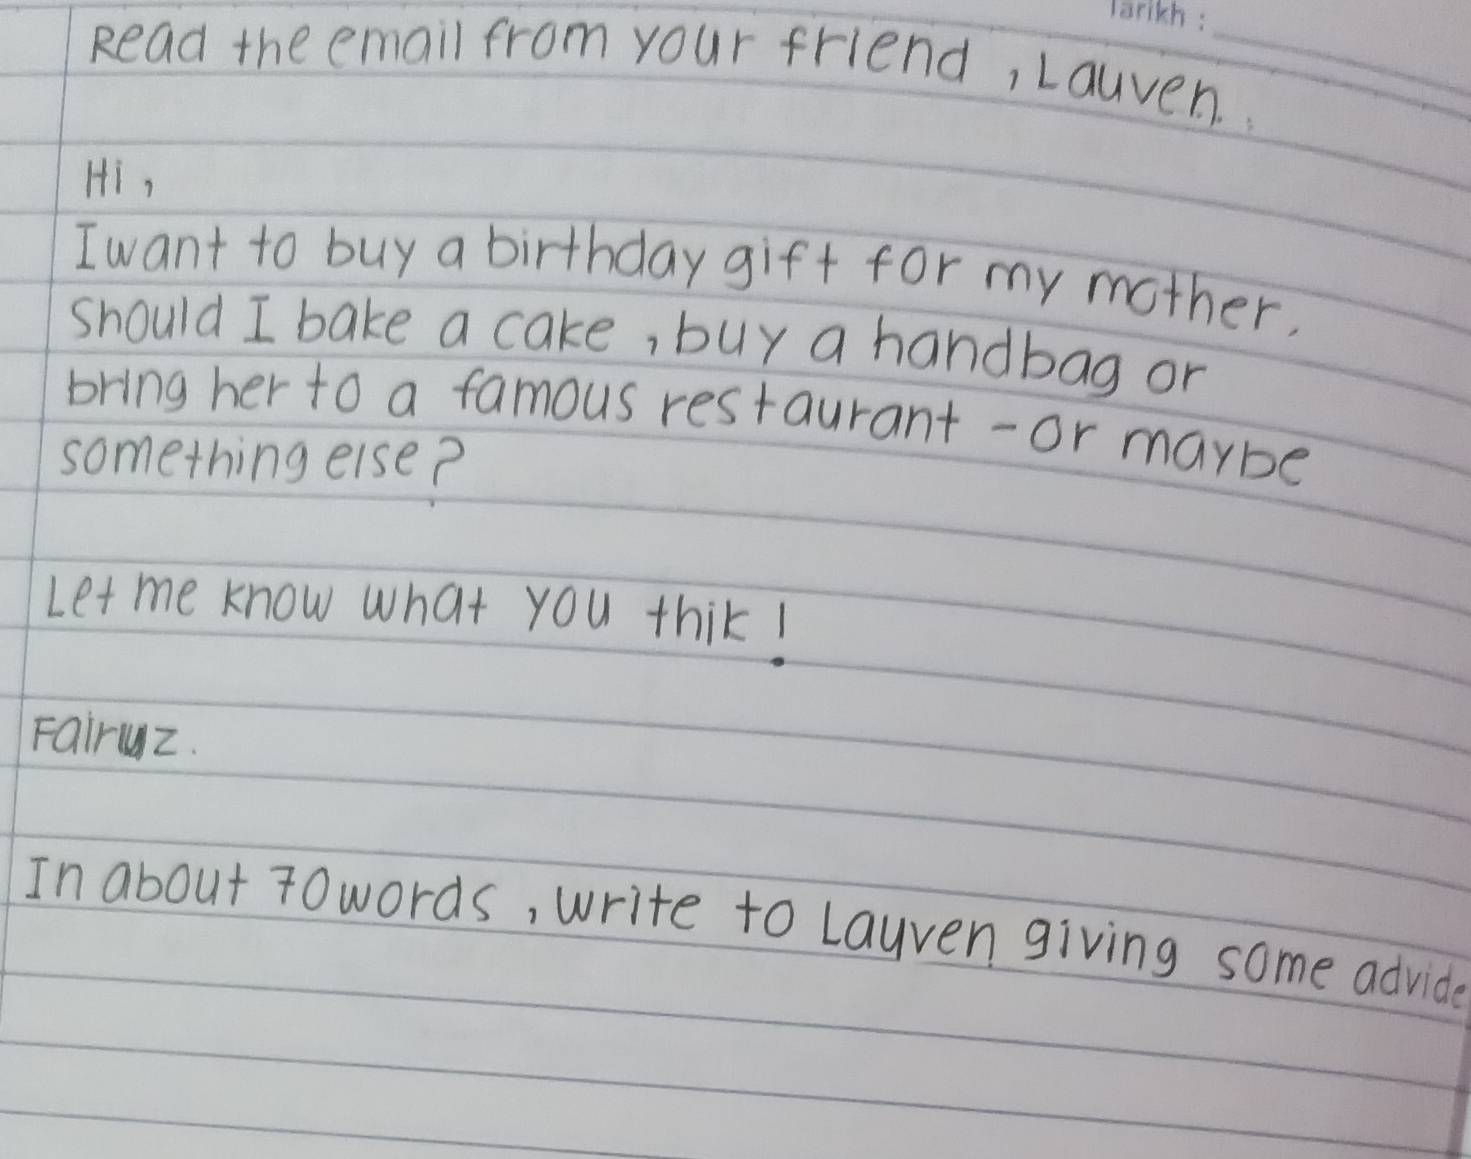 Tarikh :
Read the email from your friend, Lauven.
Hi,
I want to buy a birthday gift for my mother.
Should I bake a cake, buy a handbag or
bring her to a famous restaurant - or maybe
something else?
Let me know what you thik!
Fairuz.
In about 70 words, write to Layven giving some advide